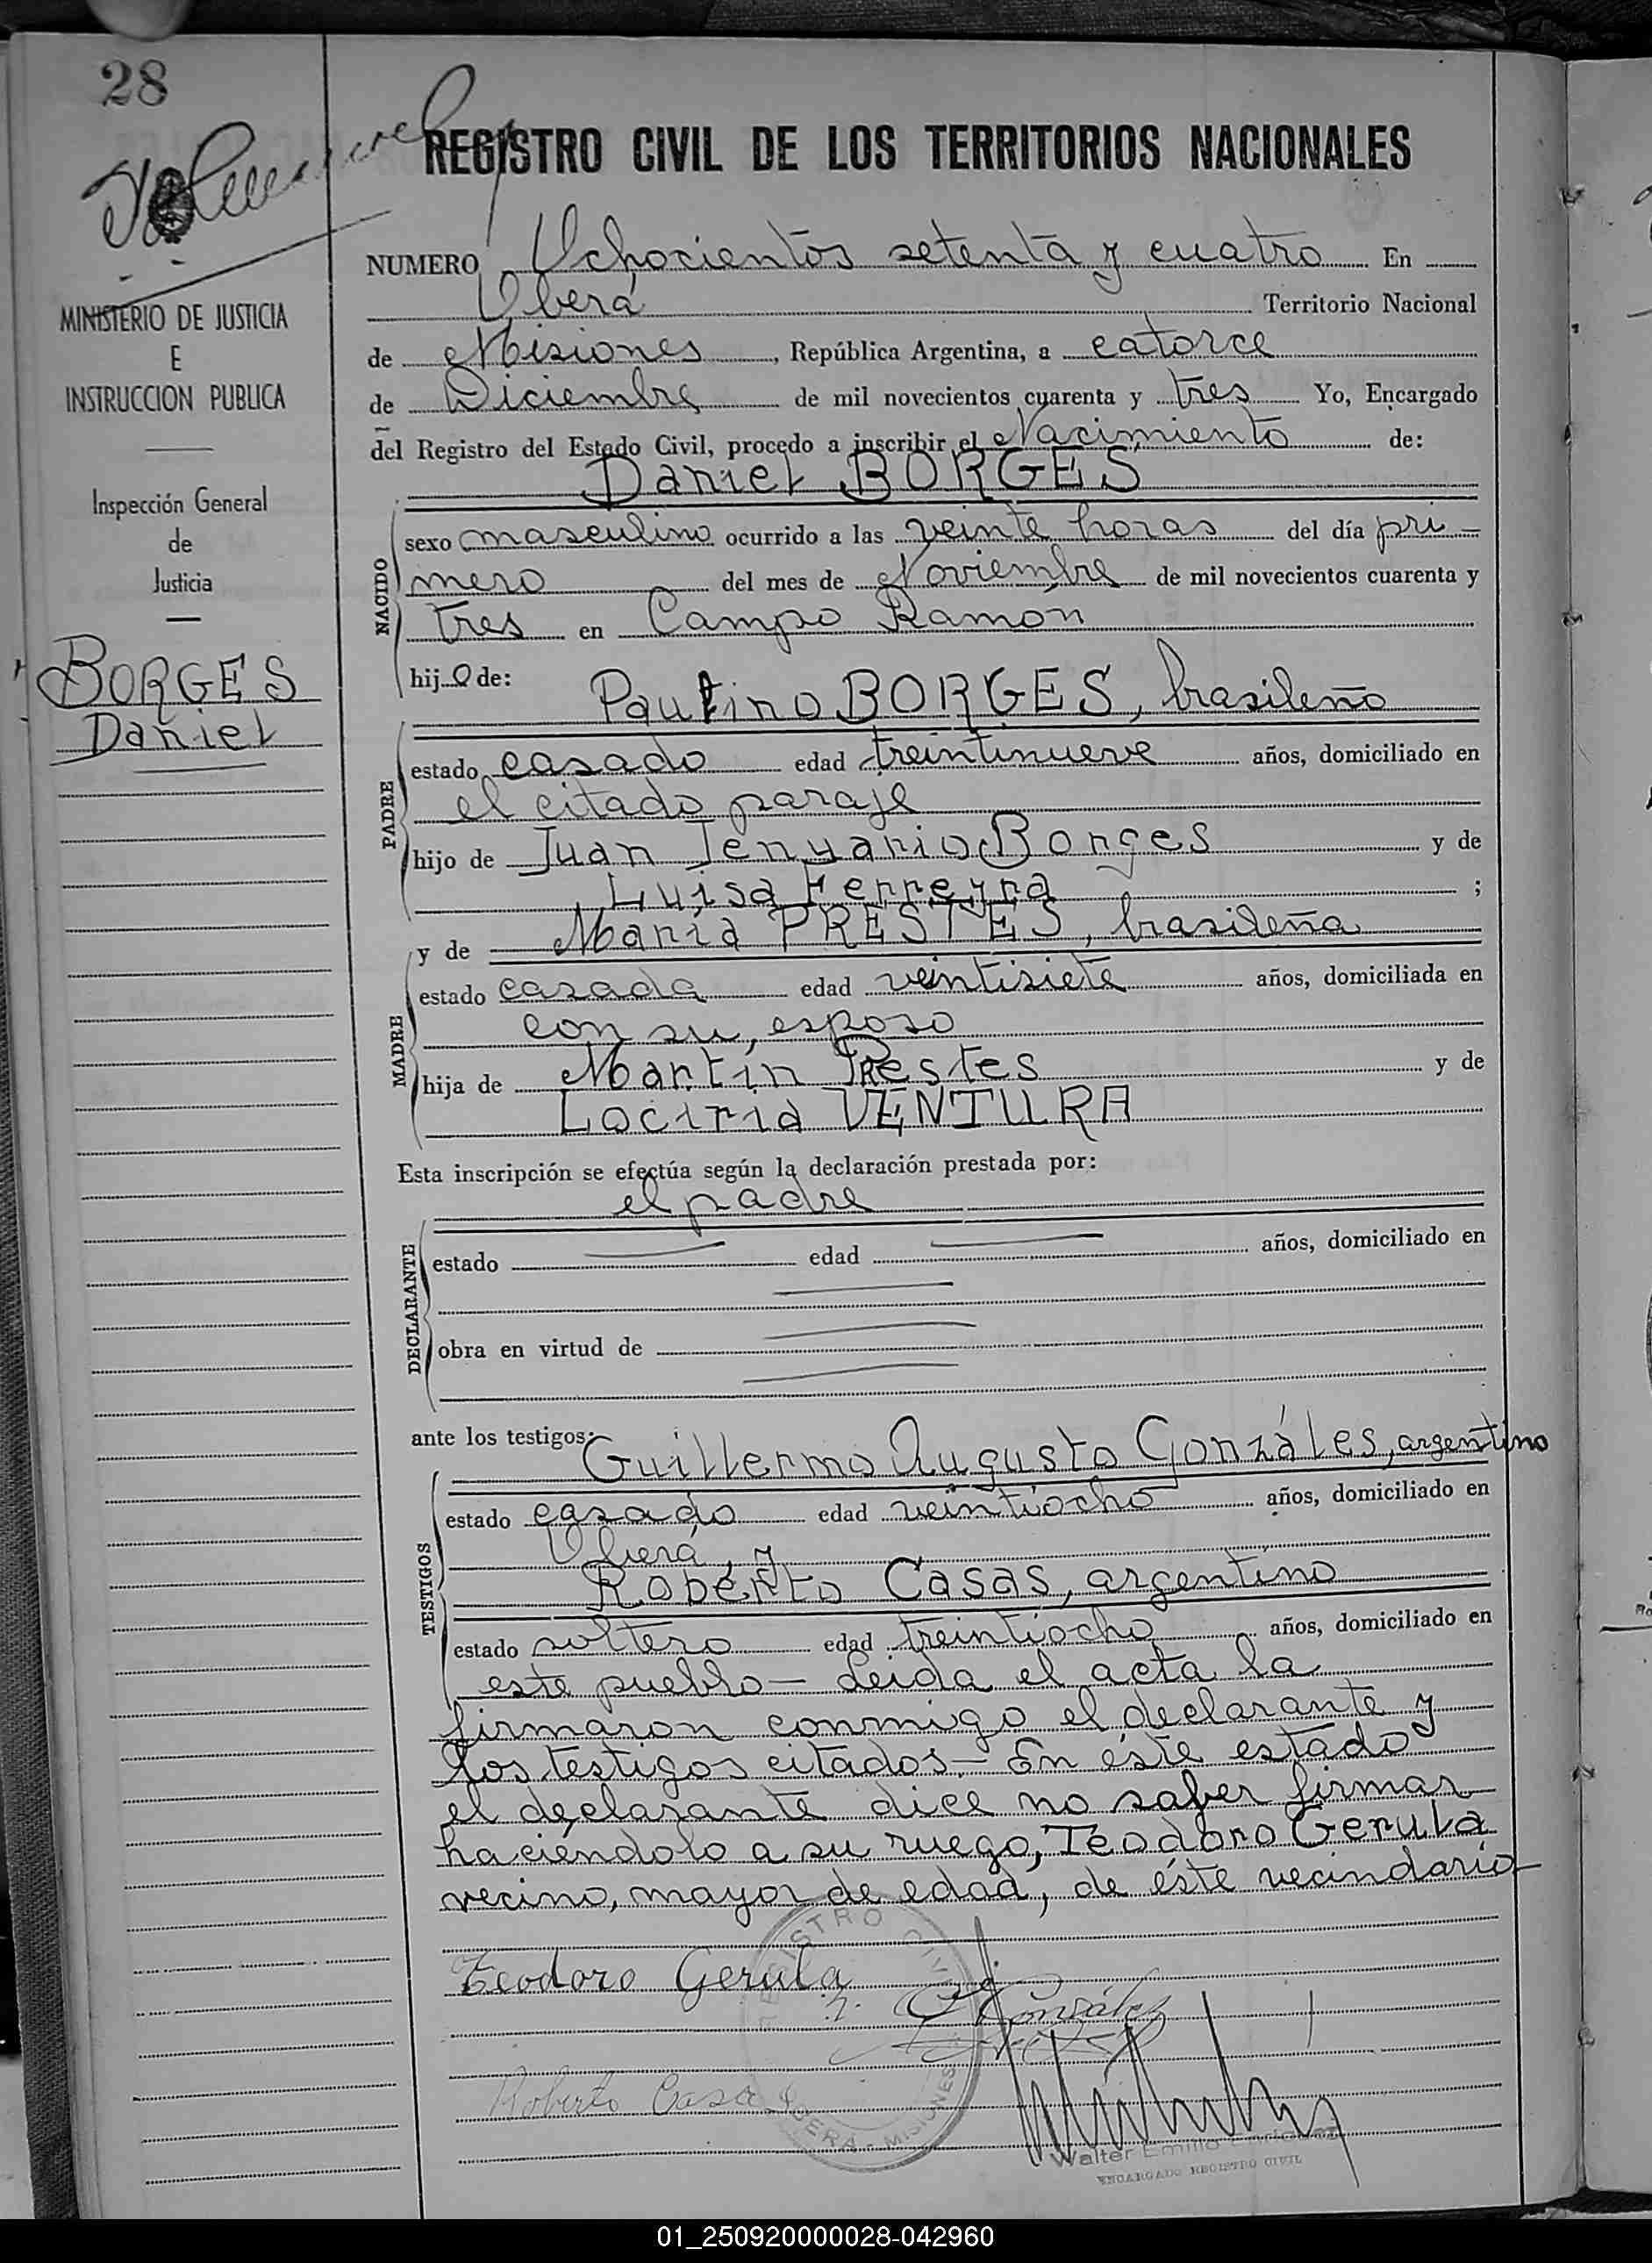 28
REGISTRO CIVIL DE LOS TERRITORIOS NACIONALES
NUMERO Ochocientos setenta y cuatro En
Oberá Territorio Nacional
de Misiones, República Argentina, a catorce
de Diciembre de mil novecientos cuarenta y tres Yo, Encargado
del Registro del Estado Civil, procedo a inscribir el Nacimiento de:
Daniel BORGES
NACIDO
sexo masculino ocurrido a las veinte horas del día pri-
mero del mes de Noviembre de mil novecientos cuarenta y
tres en Campo Ramón
hijo de:
Paulino BORGES, brasileño
PADRE
estado casado edad treintinueve años, domiciliado en
el citado paraje
hijo de Juan Jenuario Borges y de
Luisa Ferreyra ;
y de María PRESTES, brasileña
MADRE
estado casada edad veintisiete años, domiciliada en
con su esposo
hija de Martín Prestes y de
VENTURA
Esta inscripción se efectúa según la declaración prestada por:
el padre
DECLARANTE
estado edad años, domiciliado en
obra en virtud de
ante los testigos: Guillermo Augusto Gonzáles, argentino
TESTIGOS
estado casado edad veintiocho años, domiciliado en
Oberá, y
Roberto Casas, argentino
estado soltero edad treintiocho años, domiciliado en
este pueblo— Leída el acta la
firmaron conmigo el declarante y
los testigos citados.— En éste estado
el declarante dice no saber firmar
haciéndolo a su ruego, Teodoro Gerula
vecino, mayor de edad, de éste vecindario—
Teodoro Gerula
González
Roberto Casas
REGISTRO CIVIL
OBERÁ - MISIONES
Walter Emilio
ENCARGADO REGISTRO CIVIL
MINISTERIO DE JUSTICIA
E
INSTRUCCION PUBLICA
Inspección General
de
Justicia
BORGES
Daniel
01_250920000028-042960